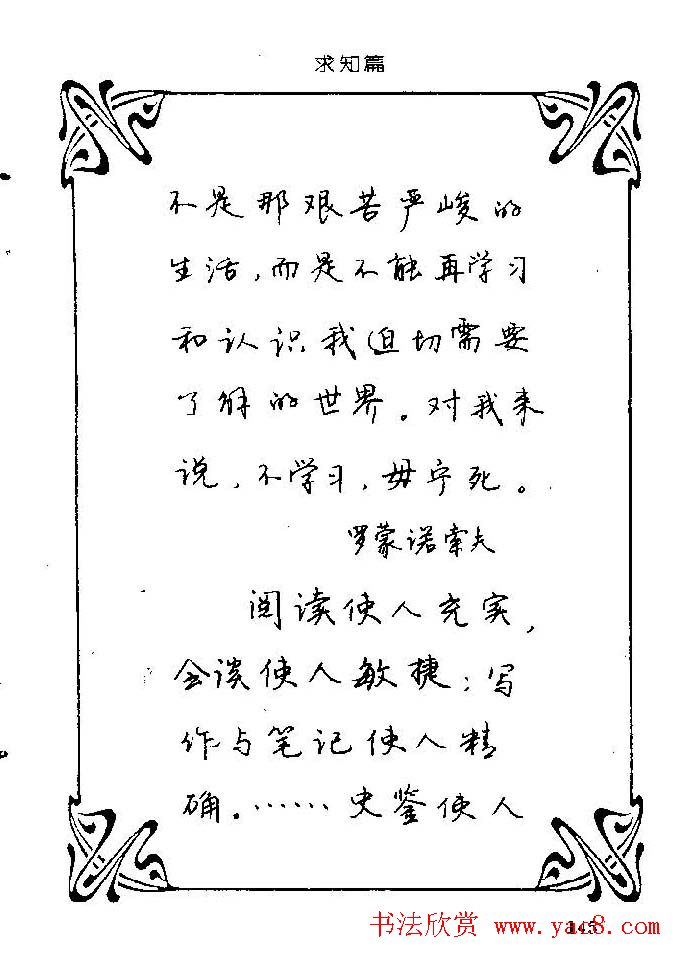 求知篇
不是那艰苦严峻的
生活，而是不能再学习
和认识我迫切需要
了解的世界。对我来
说，不学习，毋宁死。
罗蒙诺索夫
阅读使人充实，
会谈使人敏捷；写
作与笔记使人精
确。……史鉴使人
145
书法欣赏 www.yac8.com